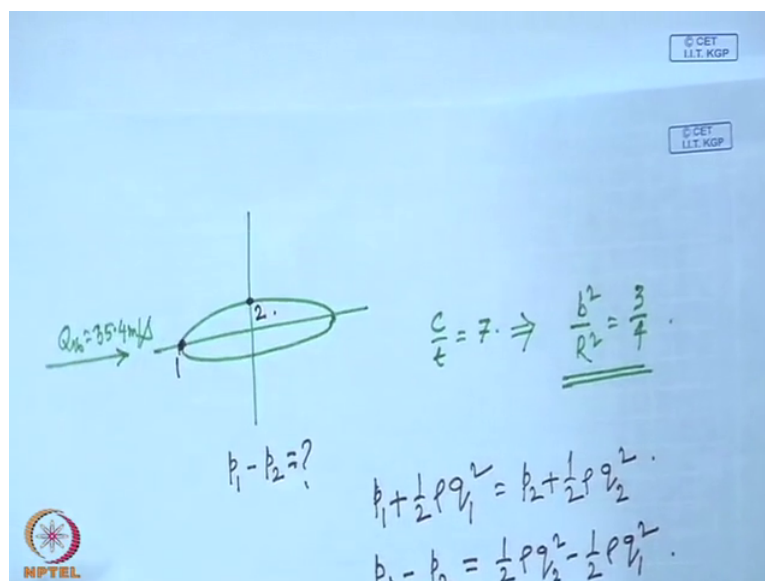 © CET
I.I.T. KGP
© CET
I.I.T. KGP
Q∞ = 35.4 m/s
1
2.
c/t = 7. ⇒ b²/R² = 3/4.
p₁ - p₂ = ?
p₁ + ½ρq₁² = p₂ + ½ρq₂².
p₁ - p₂ = ½ρq₂² - ½ρq₁².
NPTEL